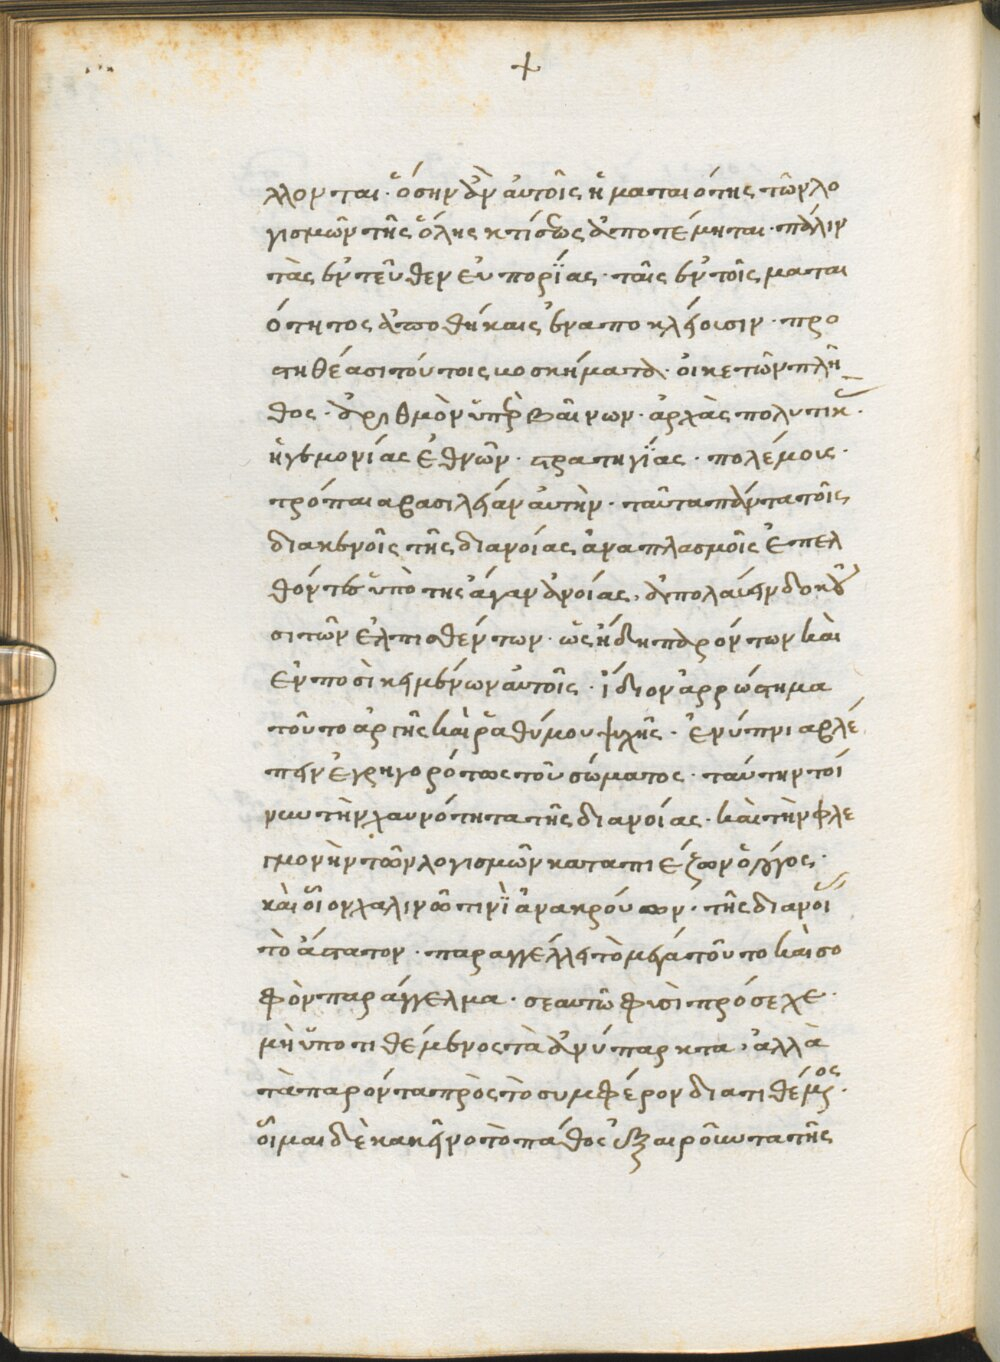 +
λλονται· ὅσην ἂν αὐτοῖς ἡ ματαιότης τῶν λο
γισμῶν τῆς ὅλης κτίσεως ἀποτέμηται· πάλιν
τὰς ἐντεῦθεν εὐπορΐας· ταῖς ἐν τοῖς μαται
ότητος ἀποθήκαις ἐναποκλείουσιν· προ
στιθέασι τούτοις κοσκήματα· οἰκετῶν πλῆ
θος· ἀριθμὸν ὑπερβαίνων· ἀρχὰς πολιτικ ·
ἡγεμονίας ἐθνῶν· στρατηγΐας· πολέμοις·
τρόπαια βασιλείαν αὐτὴν· ταῦτα πάντα τοῖς
διακενοῖς τῆς διανοίας ἀναπλασμοῖς ἐπελ
θόντες ὑπὸ της ἄγαν ἀνοίας, ἀπολαύειν δοκοῦ
σι τῶν ἐλπισθέντων· ὡς ἤδη παρόντων καὶ
ἐν ποσὶ κειμένων αὐτοῖς· ἴδιον ἀρρώστημα
τοῦτο ἀργῆς καὶ ῥαθύμου ψυχῆς· ἐνύπνια βλέ
πειν ἐγρηγορότως τοῦ σώματος· ταύτην τοί
νυν τὴν χαυνότητα τῆς διανοίας· καὶ τὴν φλε
γμονὴν τῶν λογισμῶν καταπιέζων ὁ λόγος·
καὶ οἷον χαλινῶ τινΐ ἀνακρούων· τῆς διανοί
τὸ ἄστατον· παραγγέλλει τὸ μέγα τοῦτο καὶ σο
φὸν παράγγελμα· σεαυτῶ φησὶ πρόσεχε·
μὴ ὑποτιθέμενος τὰ ἀνύπαρκτα· ἀλλὰ
τὰ παρόντα πρὸς τὸ συμφέρον διατιθέμενος·
οἶμαι δὲ κακεῖνο τὸ πάθος ἐξαιροῦντα τῆς